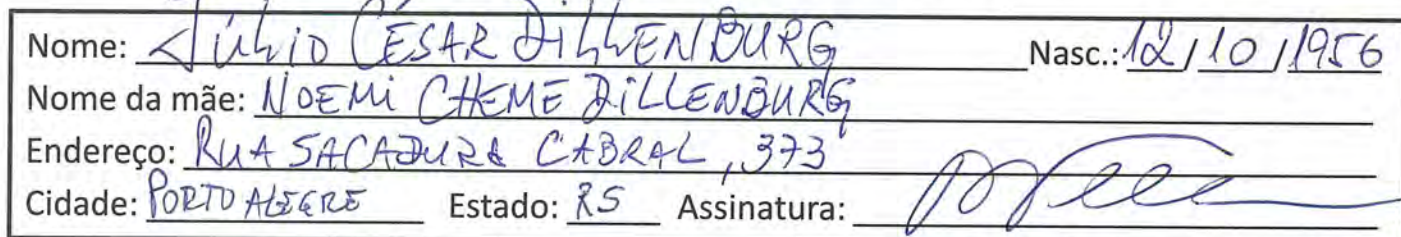 Nome: JÚLIO CÉSAR DILLENBURG Nasc.: 12/10/1956
Nome da mãe: NOEMI CHEME DILLENBURG
Endereço: RUA SACADURA CABRAL, 373
Cidade: PORTO ALEGRE Estado: RS Assinatura: